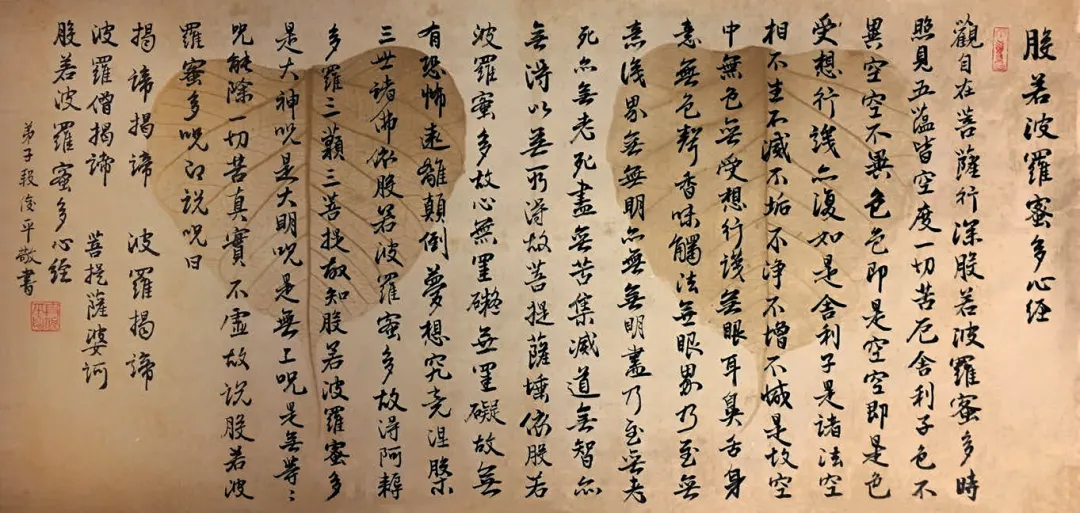 般若波羅蜜多心經
觀自在菩薩行深般若波羅蜜多時
照見五蘊皆空度一切苦厄舍利子色不
異空空不異色色即是空空即是色
受想行識亦復如是舍利子是諸法空
相不生不滅不垢不淨不增不減是故空
中無色無受想行識無眼耳鼻舌身
意無色聲香味觸法無眼界乃至無
意識界無無明亦無無明盡乃至無老
死亦無老死盡無苦集滅道無智亦
無得以無所得故菩提薩埵依般若
波羅蜜多故心無罣礙無罣礙故無
有恐怖遠離顛倒夢想究竟涅槃
三世諸佛依般若波羅蜜多故得阿耨
多羅三藐三菩提故知般若波羅蜜多
是大神咒是大明咒是無上咒是無等〻
咒能除一切苦真實不虛故說般若波
羅蜜多咒即說咒曰
揭諦揭諦 波羅揭諦
波羅僧揭諦 菩提薩婆訶
般若波羅蜜多心經
弟子段俊平敬書